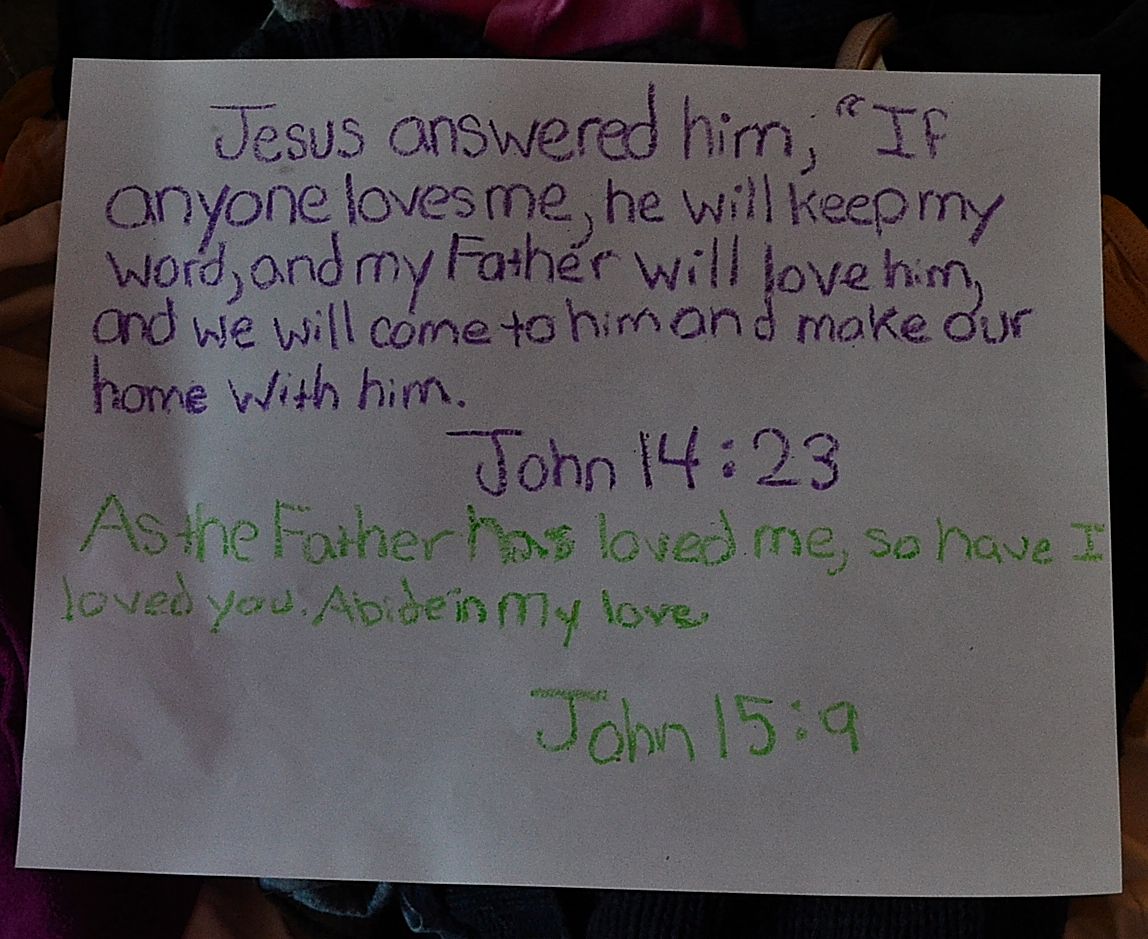 Jesus answered him, "If
anyone loves me, he will keep my
word, and my Father will love him,
and we will come to him and make our
home with him.
John 14:23
As the Father has loved me, so have I
loved you. Abide in my love.
John 15:9